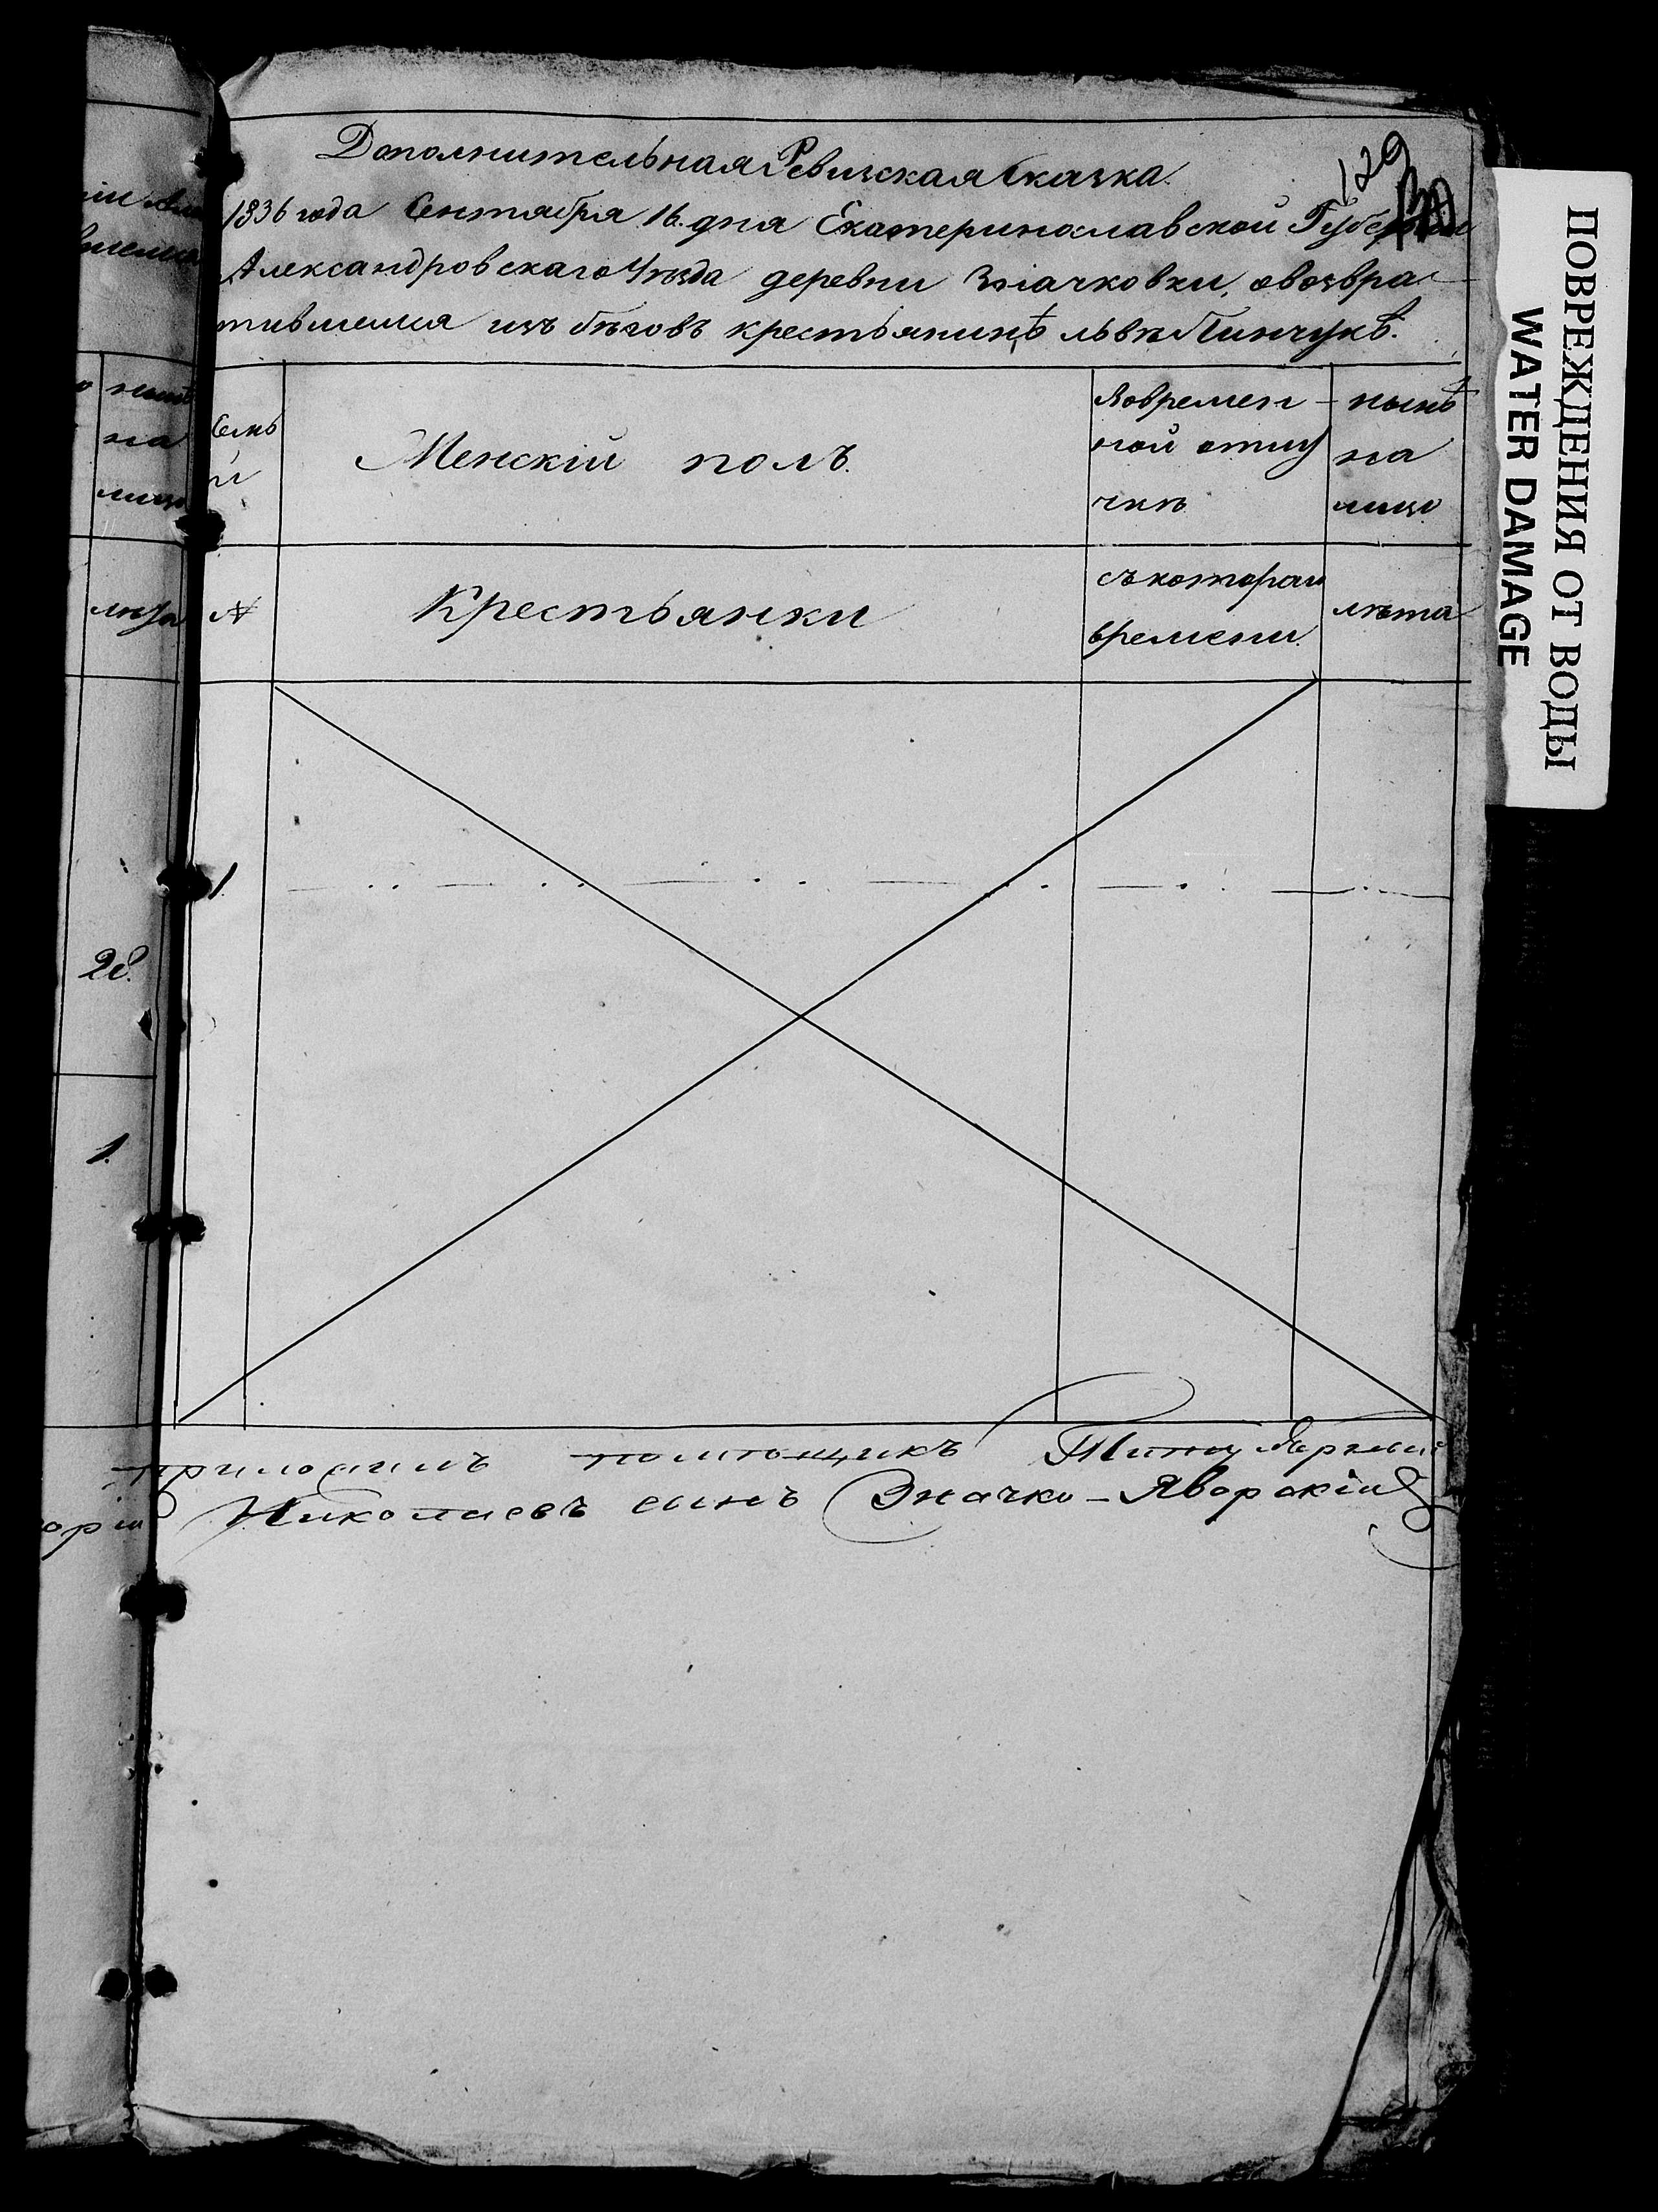 Дополнительная Ревизская Сказка.
129
1836 года Сентября 16. дня Екатеринославской Губернии
Александровскаго Уезда деревни Значковки, овозвра-
тившемся изъ бѣговъ крестьянинѣ львѣ Пинчукѣ.
Семь
и
Менскій полъ.
Вовремен-
ной отлу
чкѣ
нынѣ
на
лицо
№
Крестьянки
съкотораго
времени.
лѣта
1.
28.
1.
приложилъ помѣщикъ Титулярный
Николаевъ сынъ Значко-Яворскій
ПОВРЕЖДЕНИЯ ОТ ВОДЫ
WATER DAMAGE